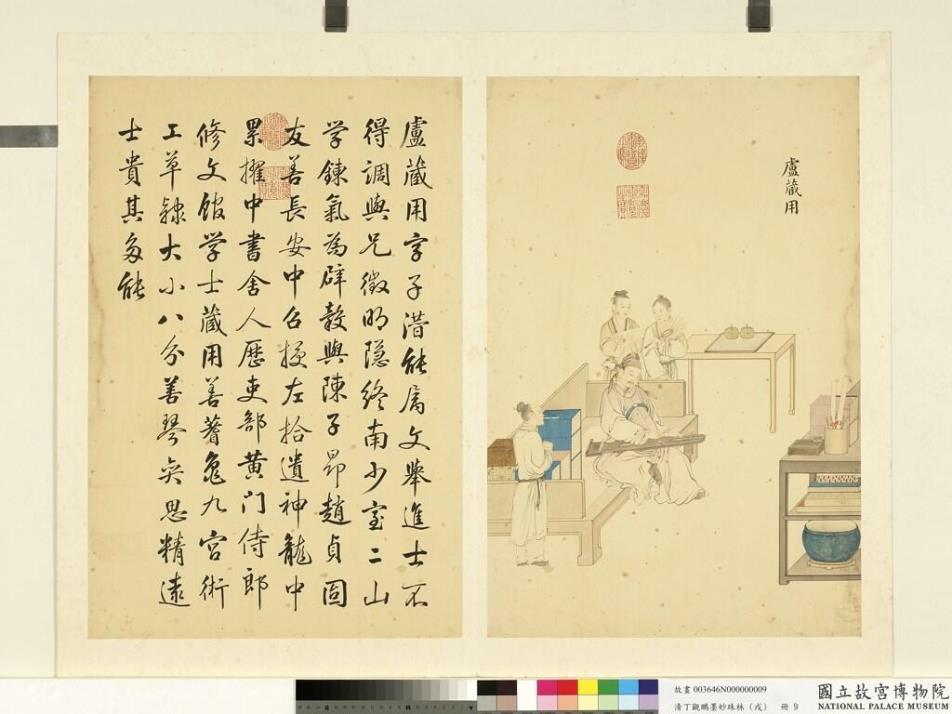 盧藏用
盧藏用字子潛能属文舉進士不
得調與兄徵明隐终南少室二山
学鍊氣為辟穀與陳子昂趙貞固
友善長安中召授左拾遺神龍中
累擢中書舍人歷吏部黄门侍郎
修文館学士藏用善蓍龜九宮術
工草隸大小八分善琴奕思精遠
士貴其多能
故畫 003646N000000009
清丁觀鵬墨妙珠林（戌） 冊 9
國立故宮博物院
NATIONAL PALACE MUSEUM